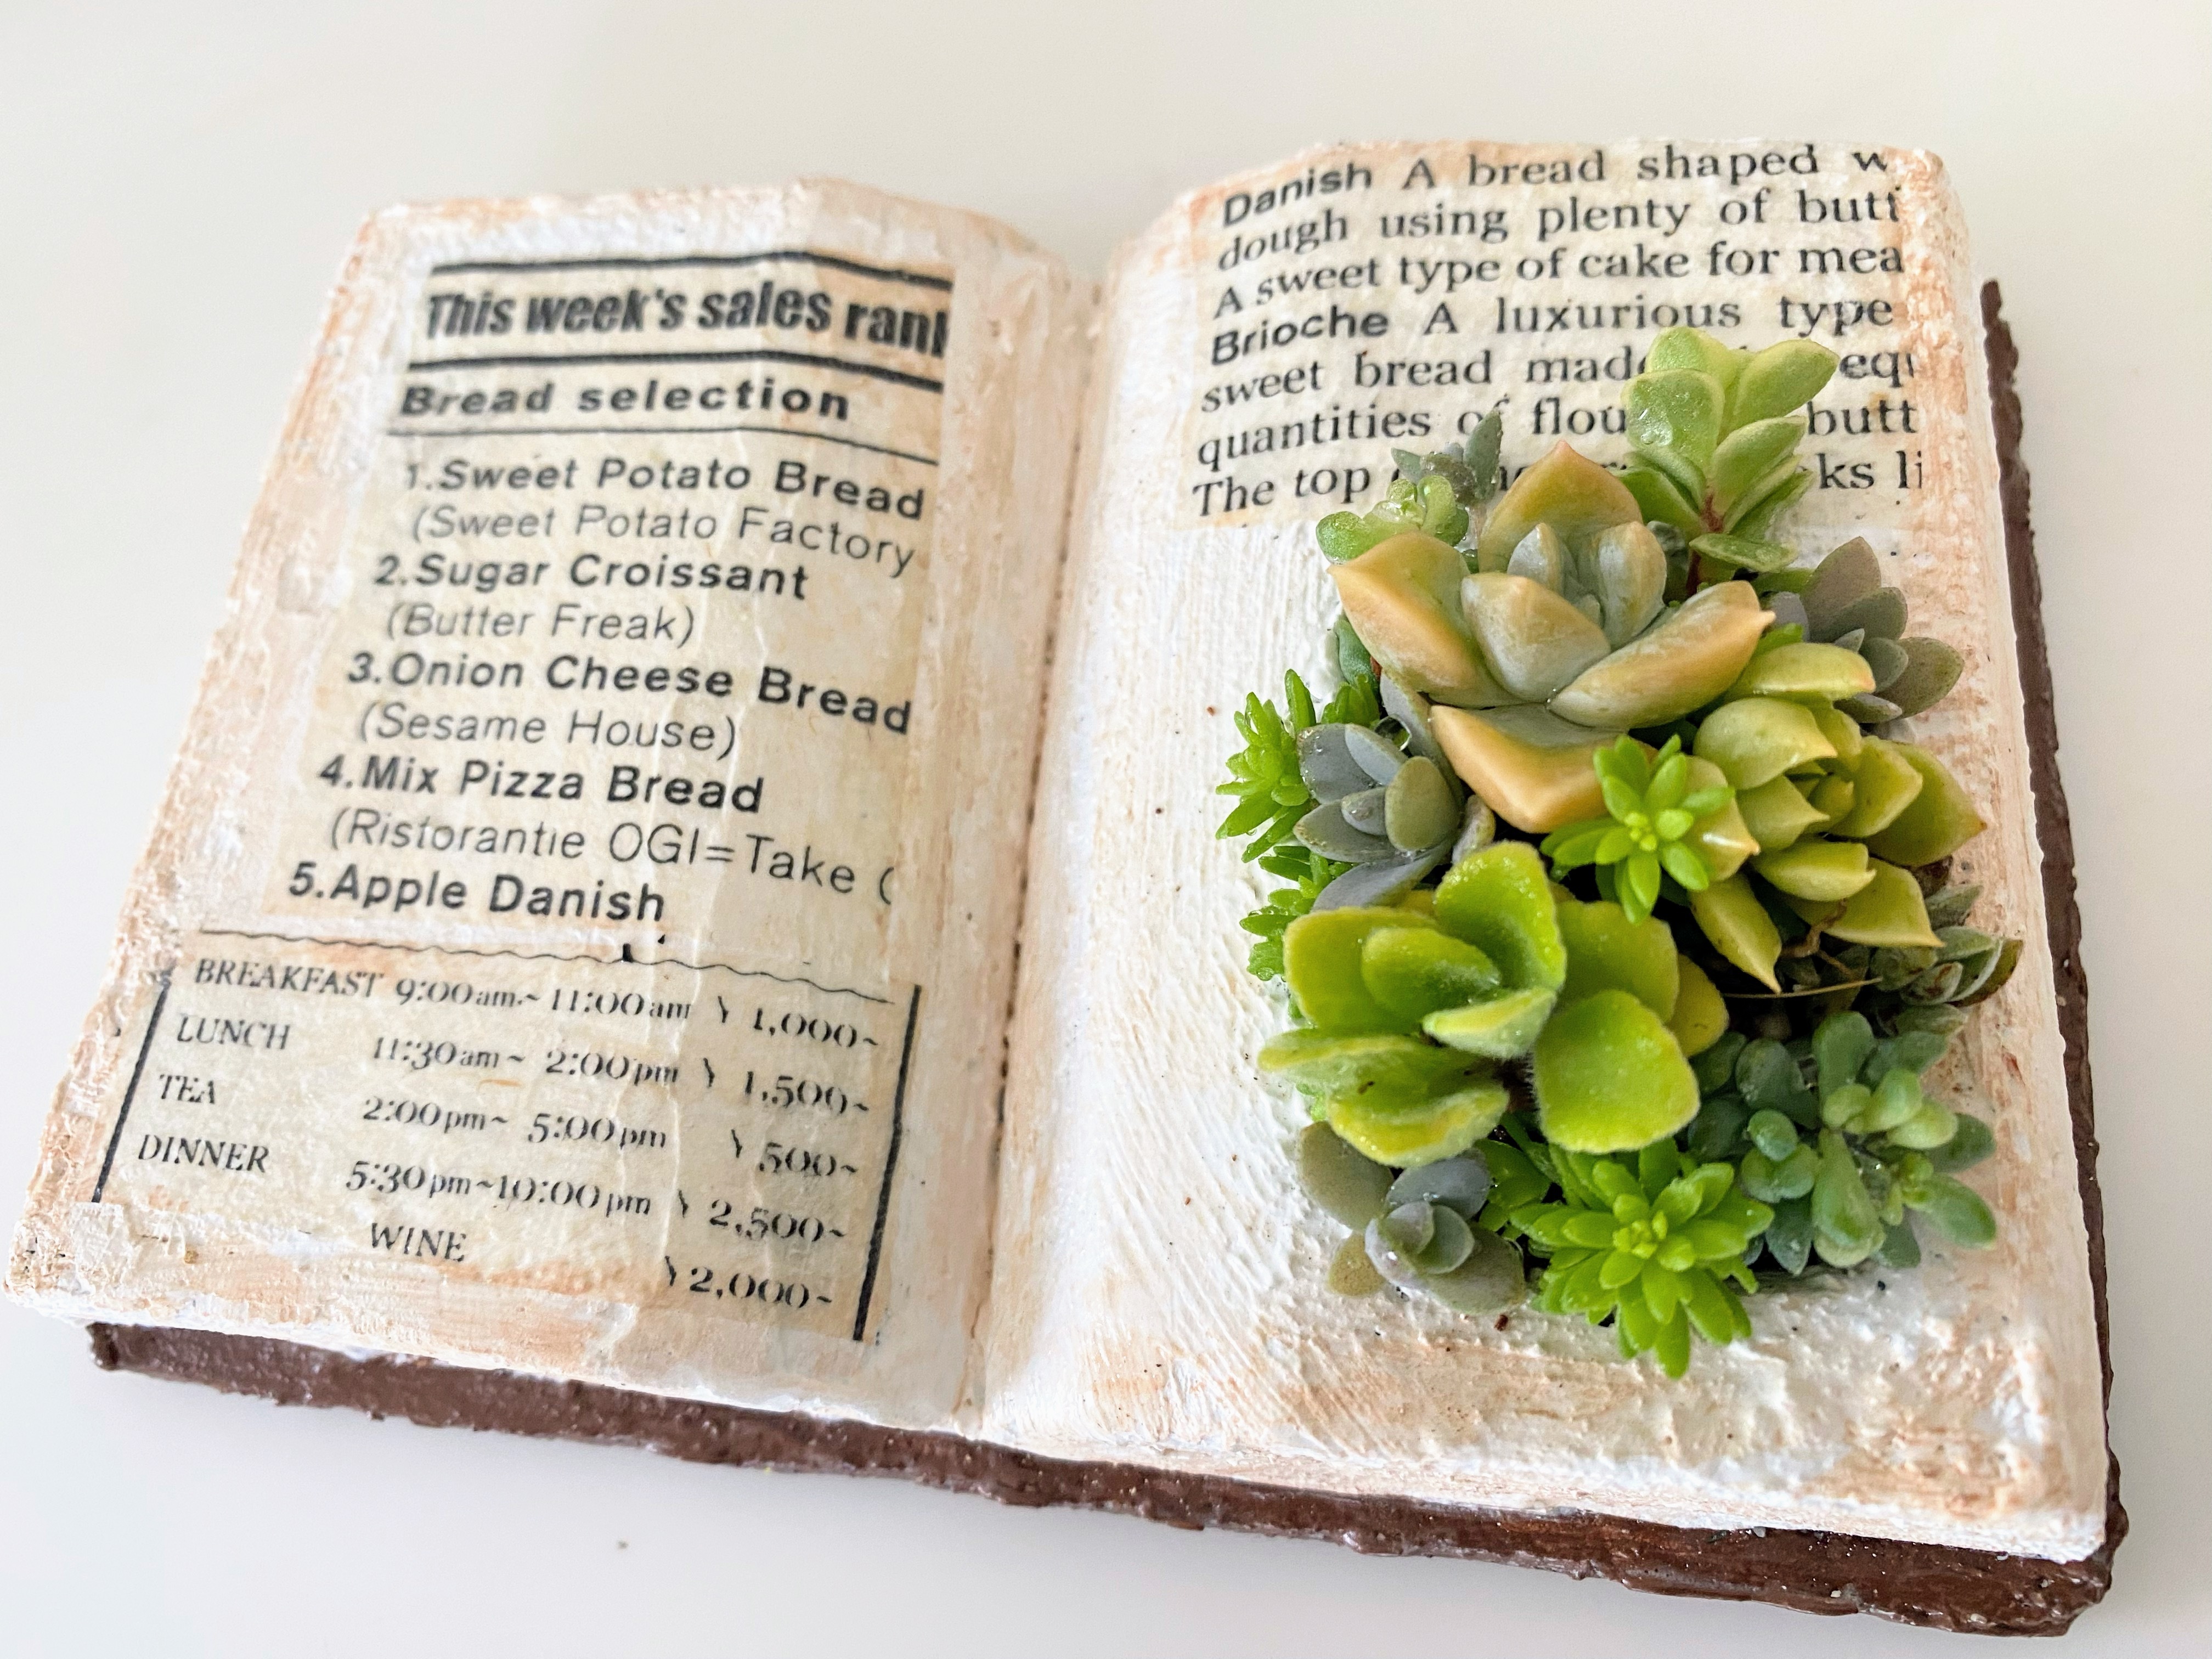 This week's sales rank
Bread selection
1.Sweet Potato Bread
(Sweet Potato Factory
2.Sugar Croissant
(Butter Freak)
3.Onion Cheese Bread
(Sesame House)
4.Mix Pizza Bread
(Ristorantie OGI=Take (
5.Apple Danish
BREAKFAST 9:00am~11:00am \ 1,000~
LUNCH 11:30am~ 2:00pm \ 1,500~
TEA 2:00pm~ 5:00pm \ 500~
DINNER 5:30pm~10:00pm \ 2,500~
WINE \ 2,000~
Danish A bread shaped w
dough using plenty of butt
A sweet type of cake for mea
Brioche A luxurious type
sweet bread made equ
quantities of flou butt
The top ks li